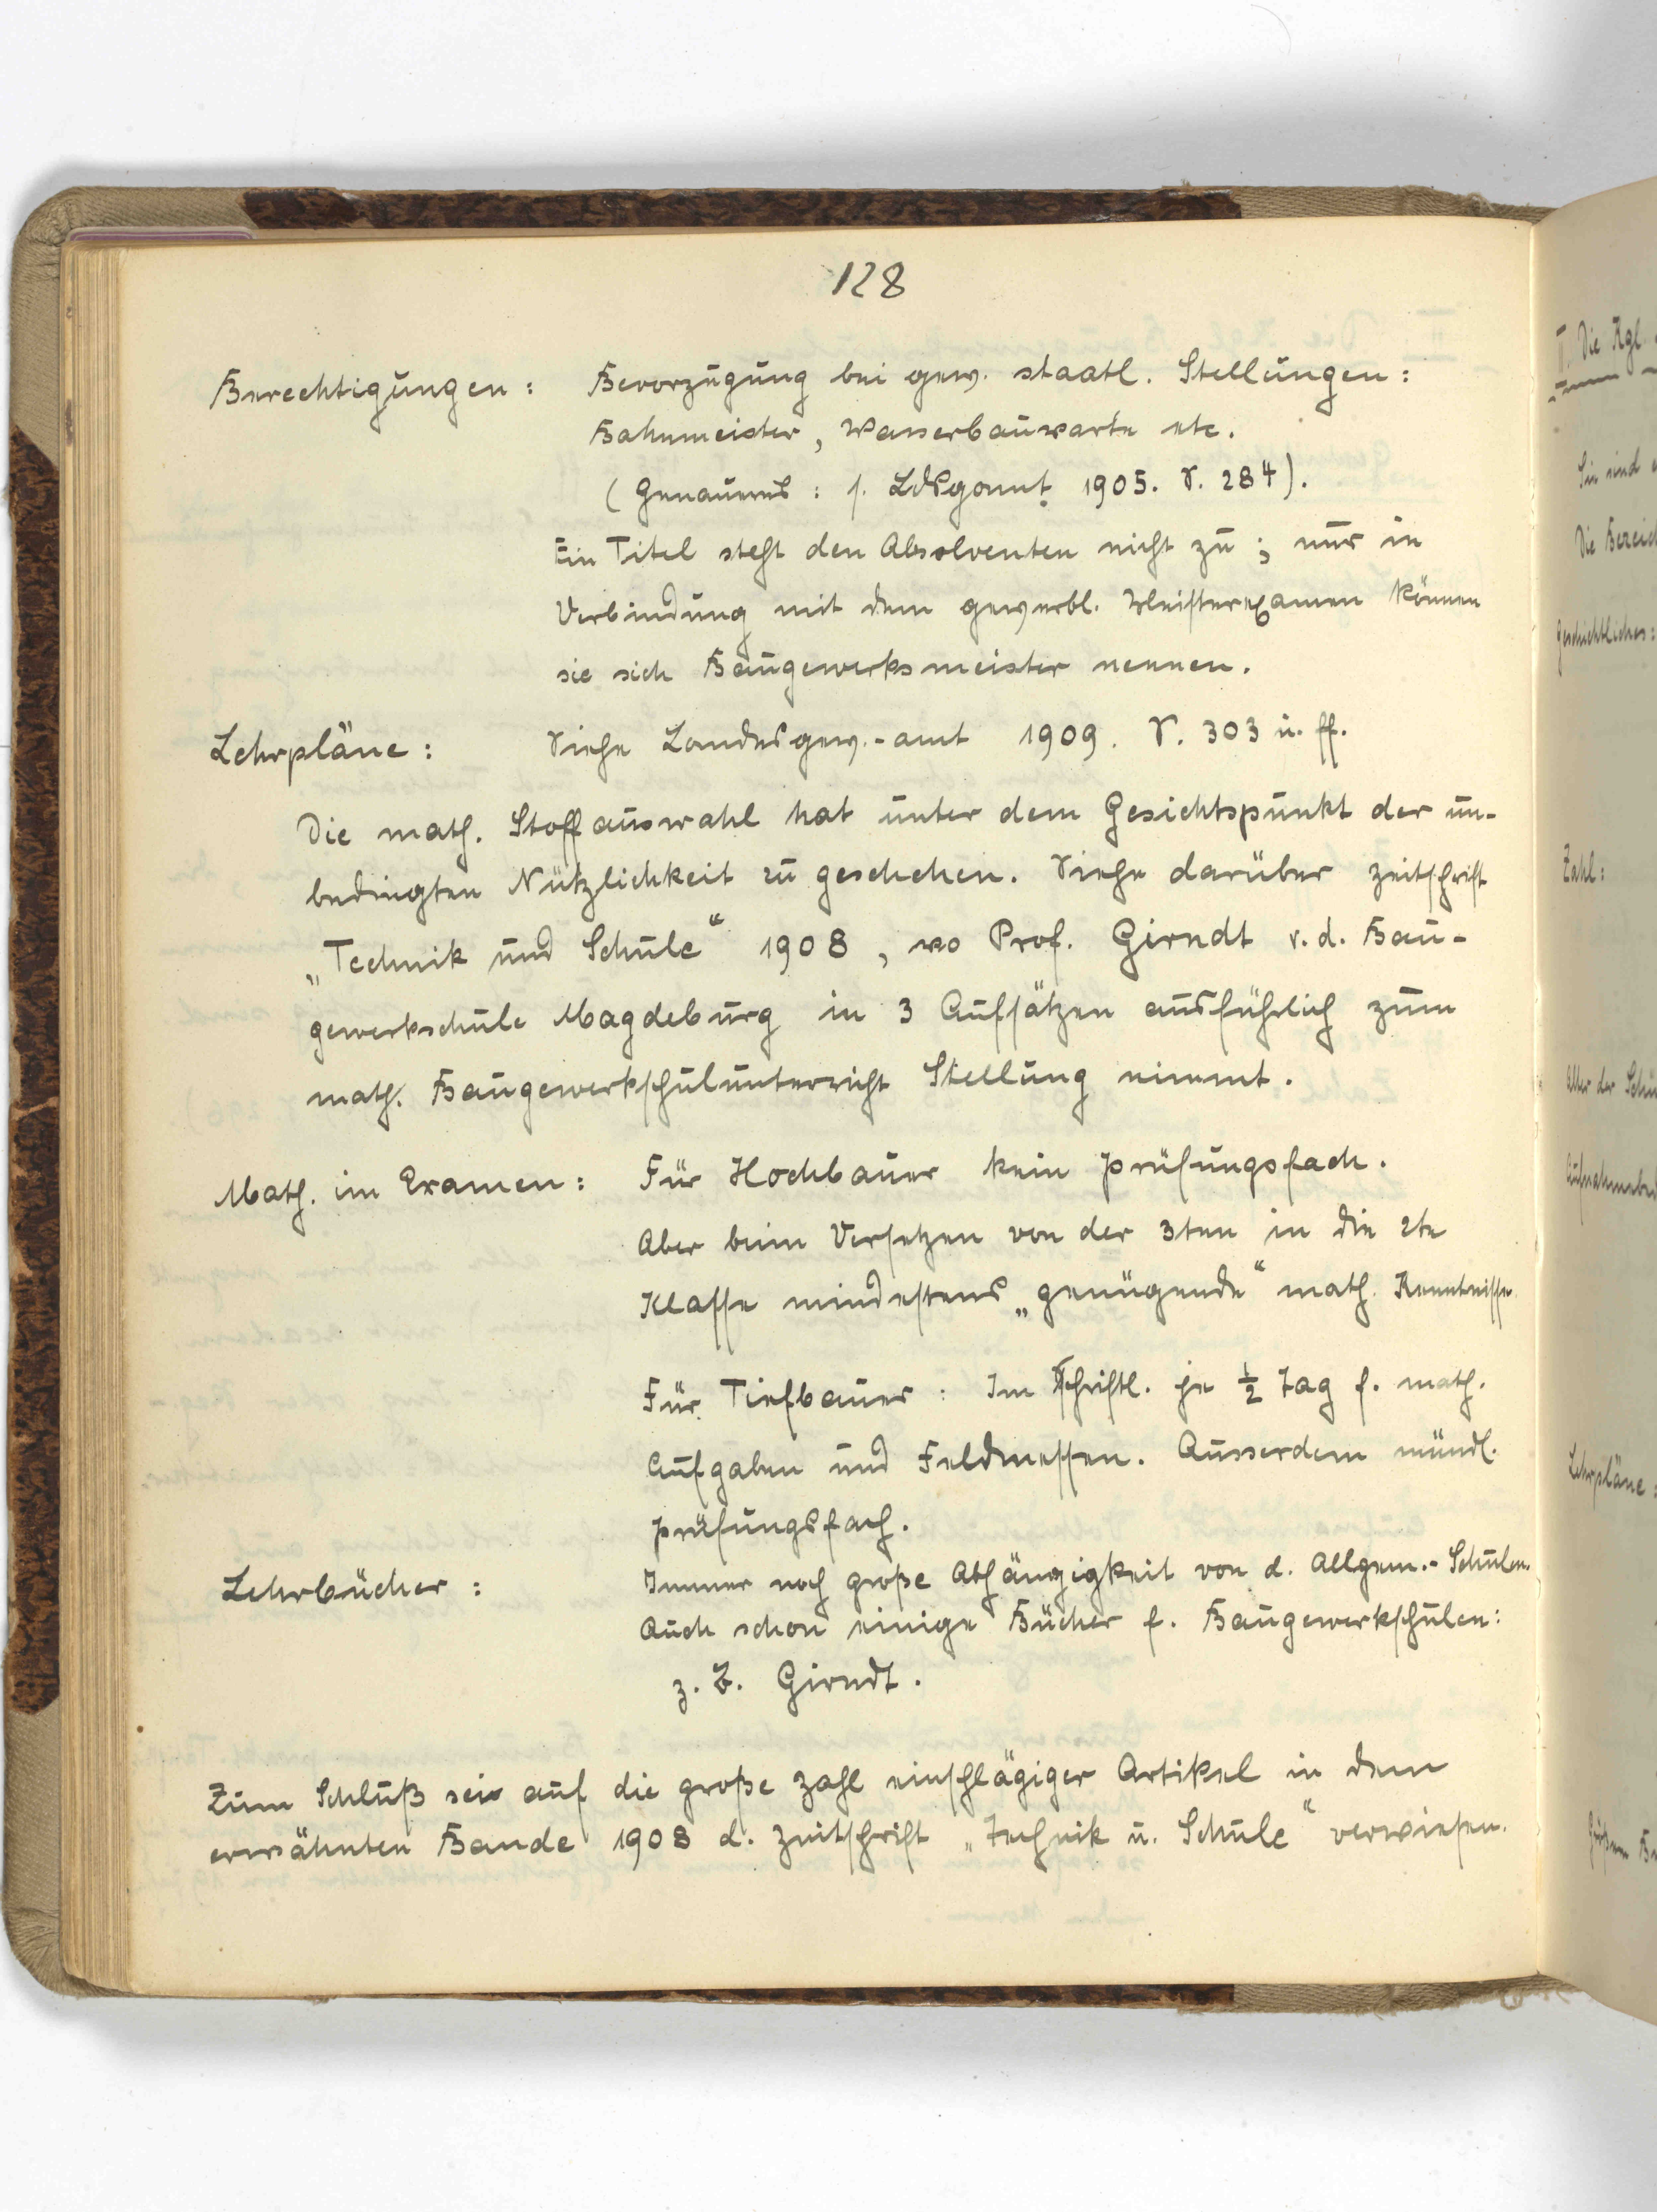 128
Berechtigungen: Bevorzugung bei gew. staatl. Stellungen:
Bahnmeister, Wasserbauwarte etc.
(Genaueres: s. Ldsgamt 1905. S. 284).
Ein Titel steht den Absolventen nicht zu; nur in
Verbindung mit dem gewerbl. Meisterexamen können
sie sich Baugewerksmeister nennen.
Lehrpläne: Siehe Landesgew.-amt 1909. S. 303 u. ff.
Die math. Stoffauswahl hat unter dem Gesichtspunkt der un-
bedingten Nützlichkeit zu geschehen. Siehe darüber Zeitschrift
„Technik und Schule“ 1908, wo Prof. Girndt v. d. Bau-
gewerkschule Magdeburg in 3 Aufsätzen ausführlich zum
math. Baugewerkschulunterricht Stellung nimmt.
Math. im Examen: Für Hochbauer kein Prüfungsfach.
Aber beim Versetzen von der 3ten in die 2te
Klasse mindestens „genügende“ math. Kenntnisse
Für Tiefbauer: Im schriftl. je ½ Tag f. math.
Aufgaben und Feldmessen. Ausserdem mündl.
Prüfungsfach.
Lehrbücher: Immer noch große Abhängigkeit von d. Allgem.-Schulen.
Auch schon einige Bücher f. Baugewerkschulen:
z. B. Girndt.
Zum Schluß sei auf die große Zahl einschlägiger Artikel in dem
erwähnten Bande 1908 d. Zeitschrift „Technik u. Schule“ verwiesen.
II. Die Kgl.
Sie sind
Die Bezeich
Geschichtliches:
Zahl:
Alter der Schü
Aufnahmebed
Lehrpläne: